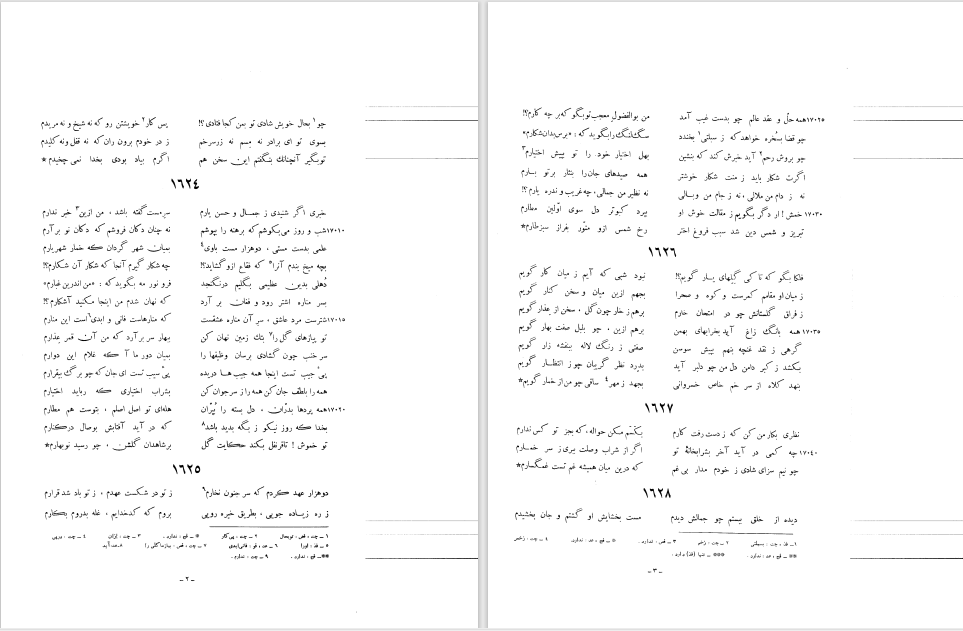 چو۱ بحال خویش شادی تو بمن کجا فتادی؟! پس کار۲ خویشتن رو که نه شیخ و نه مریدم
بسوی تو ای برادر نه مسم نه زر سرخم ز در خودم برون ران که نه قفل و نه کلیدم
تو بگیر آنچنانک بنگفتم این سخن هم اگرم بیاد بودی بخدا نمی چخیدم*
۱۶۲٤
خبری اگر شنیدی ز جمال و حسن یارم سر مست گفته باشد ، من ازین۳ خبر ندارم
۱۷۰۱۰ شب و روز می‌بکوشم که برهنه را بپوشم نه چنان دکان فروشم که دکان نو بر آرم
علمی بدست مستی ، دو هزار مست باوی٤ بمیان شهر گردان که خمار شهریارم
بچه میخ بندم آنرا٥ که فقاع ازو گشاید؟! چه شکار گیرم آنجا که شکار آن شکارم؟!
دهلی بدین عظیمی بگلیم در نگنجد فر و نور مه بگوید که : «من اندرین غبارم»
بسر مناره اشتر رود و فغان بر آرد که نهان شدم من اینجا مکنید آشکارم؟!
۱۷۰۱٥ شترست مرد عاشق ، سر آن مناره عشقست که منارهاست فانی و ابدی٦ است این منارم
تو پیازهای گل را۷ بتک زمین نهان کن بهار سر بر آرد که من آن قمر عذارم
سر خنب چون گشادی برسان وظیفها را بمیان دور ما آ که غلام این دوارم
پی جیب تست اینجا همه جیب‌ها دریده پی سیب تست ای جان که چو برگ بیقرارم
همه را بلطف جان کن همه را ز سر جوان کن بشراب اختیاری که رباید اختیارم
۱۷۰۲۰ همه پردها بدران ، دل بسته را بپران هله‌ای تو اصل اصلم ، بتوست هم مطارم
بخدا که روز نیکو ز بگه بدید باشد۸ که در آید آفتابش بوصال در کنارم
تو خموش ! تا قرنفل بکند حکایت گل بر شاهدان گلشن ، چو رسید نوبهارم*
۱۶۲٥
دو هزار عهد کردم که سر جنون نخارم۹ ز تو در شکست عهدم ، ز تو باد شد قرارم
ز ره زیاده جویی ، بطریق خیره رویی بروم که کدخدایم ، غله بدروم بکارم
۲
۱۷۰۲٥ همه حل و عقد عالم چو بدست غیب آمد من بوالفضول معجب تو بگو که بر چه کارم؟!
چو قضا بسخره خواهد که ز سبلتی۱ بخندد سگ لنگ را بگوید که : «برس بدان شکارم»
چو بروش رحم۲ آید خبرش کند که بنشین بهل اختیار خود را تو بپیش اختیارم۳
اگرت شکار باید ز منت شکار خوشتر همه صیدهای جان را بنثار بر تو بارم
نه ز دام من ملالی ، نه ز جام من وبالی نه نظیر من جمالی، چه غریب و ندره یارم؟!
۱۷۰۳۰ خمش! ار دگر بگویم ز مقالت خوش او بپرد کبوتر دل سوی اولین مطارم
تبریز و شمس دین شد سبب فروغ اختر رخ شمس ازو منور بفراز سبز طارم*
۱۶۲۶
فلکا بگو که تا کی گلهای یار گویم؟! نبود شبی که آیم ز میان کار گویم
ز میان او مقامم کمرست و کوه و صحرا بجهم ازین میان و سخن کنار گویم
ز فراق گلستانش چو در امتحان خارم برهم ز خار چون گل ، سخن از عذار گویم
۱۷۰۳٥ همه بانگ زاغ آید بخرابهای بهمن برهم ازین ، چو بلبل صفت بهار گویم
گرهی ز نقد غنچه بنهم بپیش سوسن صفتی ز رنگ لاله ببنفشه زار گویم
بکشد ز کبر دامن دل من چو دلبر آید بدرد نظر گریبان چو ز انتظار گویم
بنهد کلاه از سر خم خاص خسروانی بجهد ز مهر٤ ساقی چو من از خمار گویم*
۱۶۲۷
نظری بکار من کن که ز دست رفت کارم بکسم مکن حواله، که بجز تو کس ندارم
۱۷۰٤۰ چه کمی در آید آخر بشرابخانهٔ تو اگر از شراب وصلت ببری ز سر خمارم
چو نیم سزای شادی ز خودم مدار بی غم که درین میان همیشه غم تست غمگسارم*
۱۶۲۸
دیده از خلق ببستم چو جمالش دیدم مست بخشایش او گشتم و جان بخشیدم
۳